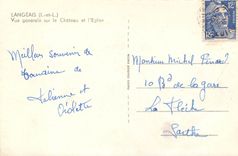 LANGEAIS (I.-et-L.)
Vue générale sur le Château et l'Eglise
Meilleur souvenir de
Touraine de
Lilienne et
Violette
Monsieur Michel
10 Bd de la gare
La Flèche
Sarthe